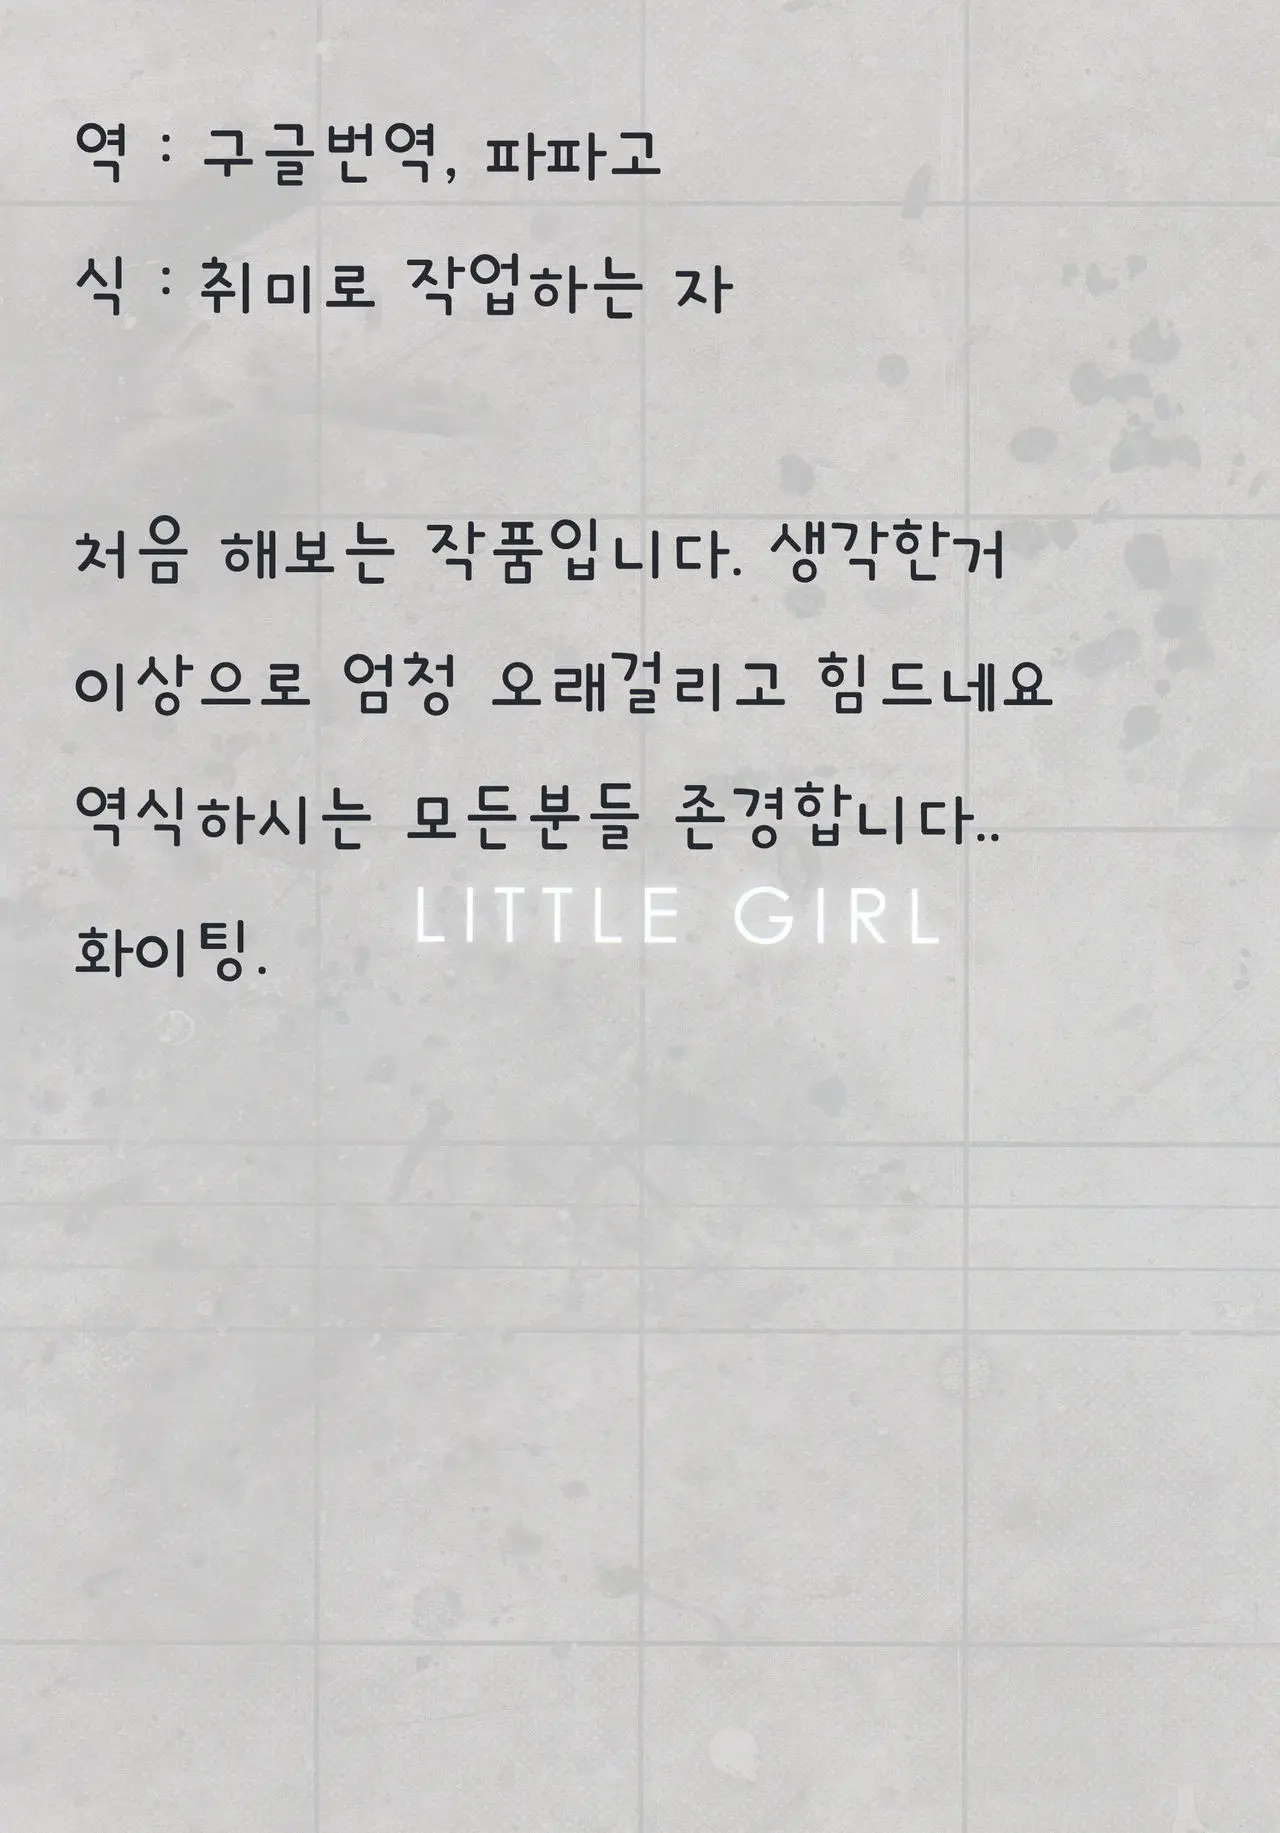 역 : 구글번역, 파파고
식 : 취미로 작업하는 자
처음 해보는 작품입니다. 생각한거
이상으로 엄청 오래걸리고 힘드네요
역식하시는 모든분들 존경합니다..
LITTLE GIRL
화이팅.